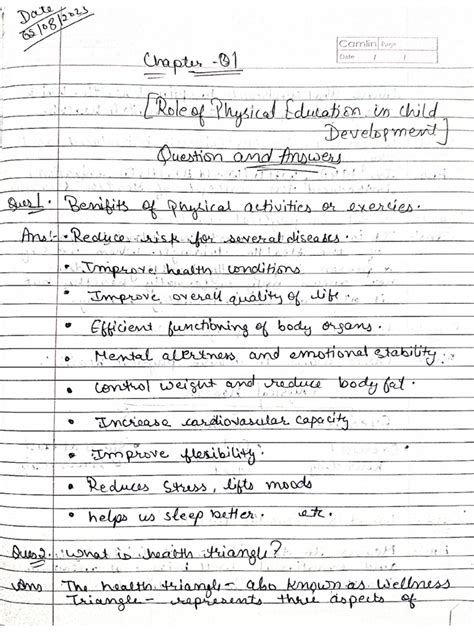 Date
02/08/2023
Camlin Page
Date / /
Chapter - 01
[Role of Physical Education in child
Development]
Question and Answers
Ques1. Benifits of physical activities or exercies.
Ans:- • Reduce risk for several diseases.
• Improve health conditions
• Improve overall quality of life.
• Efficient functioning of body organs.
• Mental alertness, and emotional stability.
• control weight and reduce body fat.
• Increase cardiovasular capacity
• Improve flexibility.
• Reduces stress, lifts moods
• helps us sleep better. etc.
Ques2. What is health triangle?
Ans The health triangle - also known as wellness
Triangle - represents three aspects of